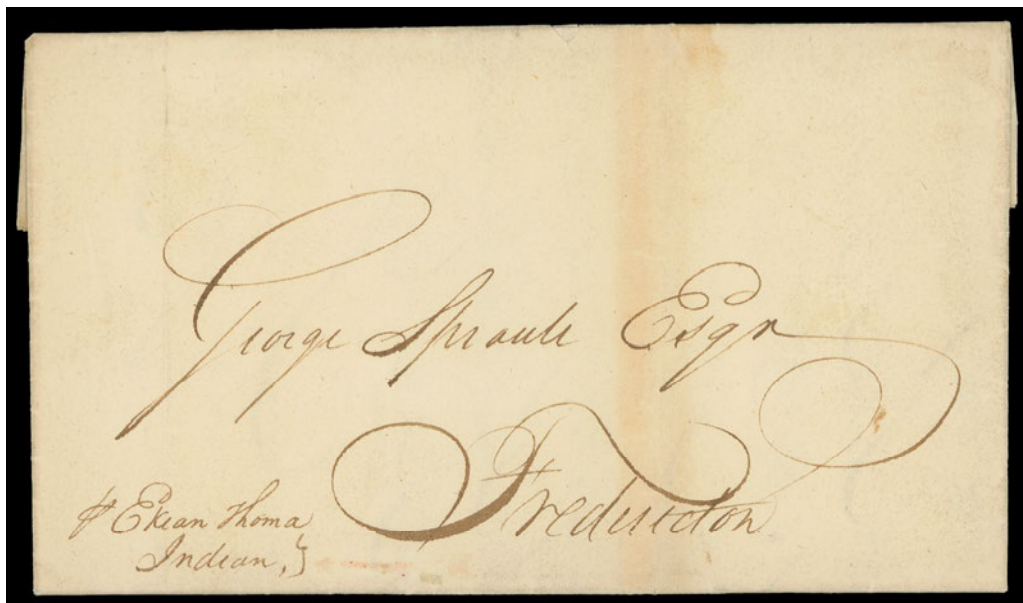 George Sproule Esqr
Fredericton
pr Ekean Thoma
Indian, }